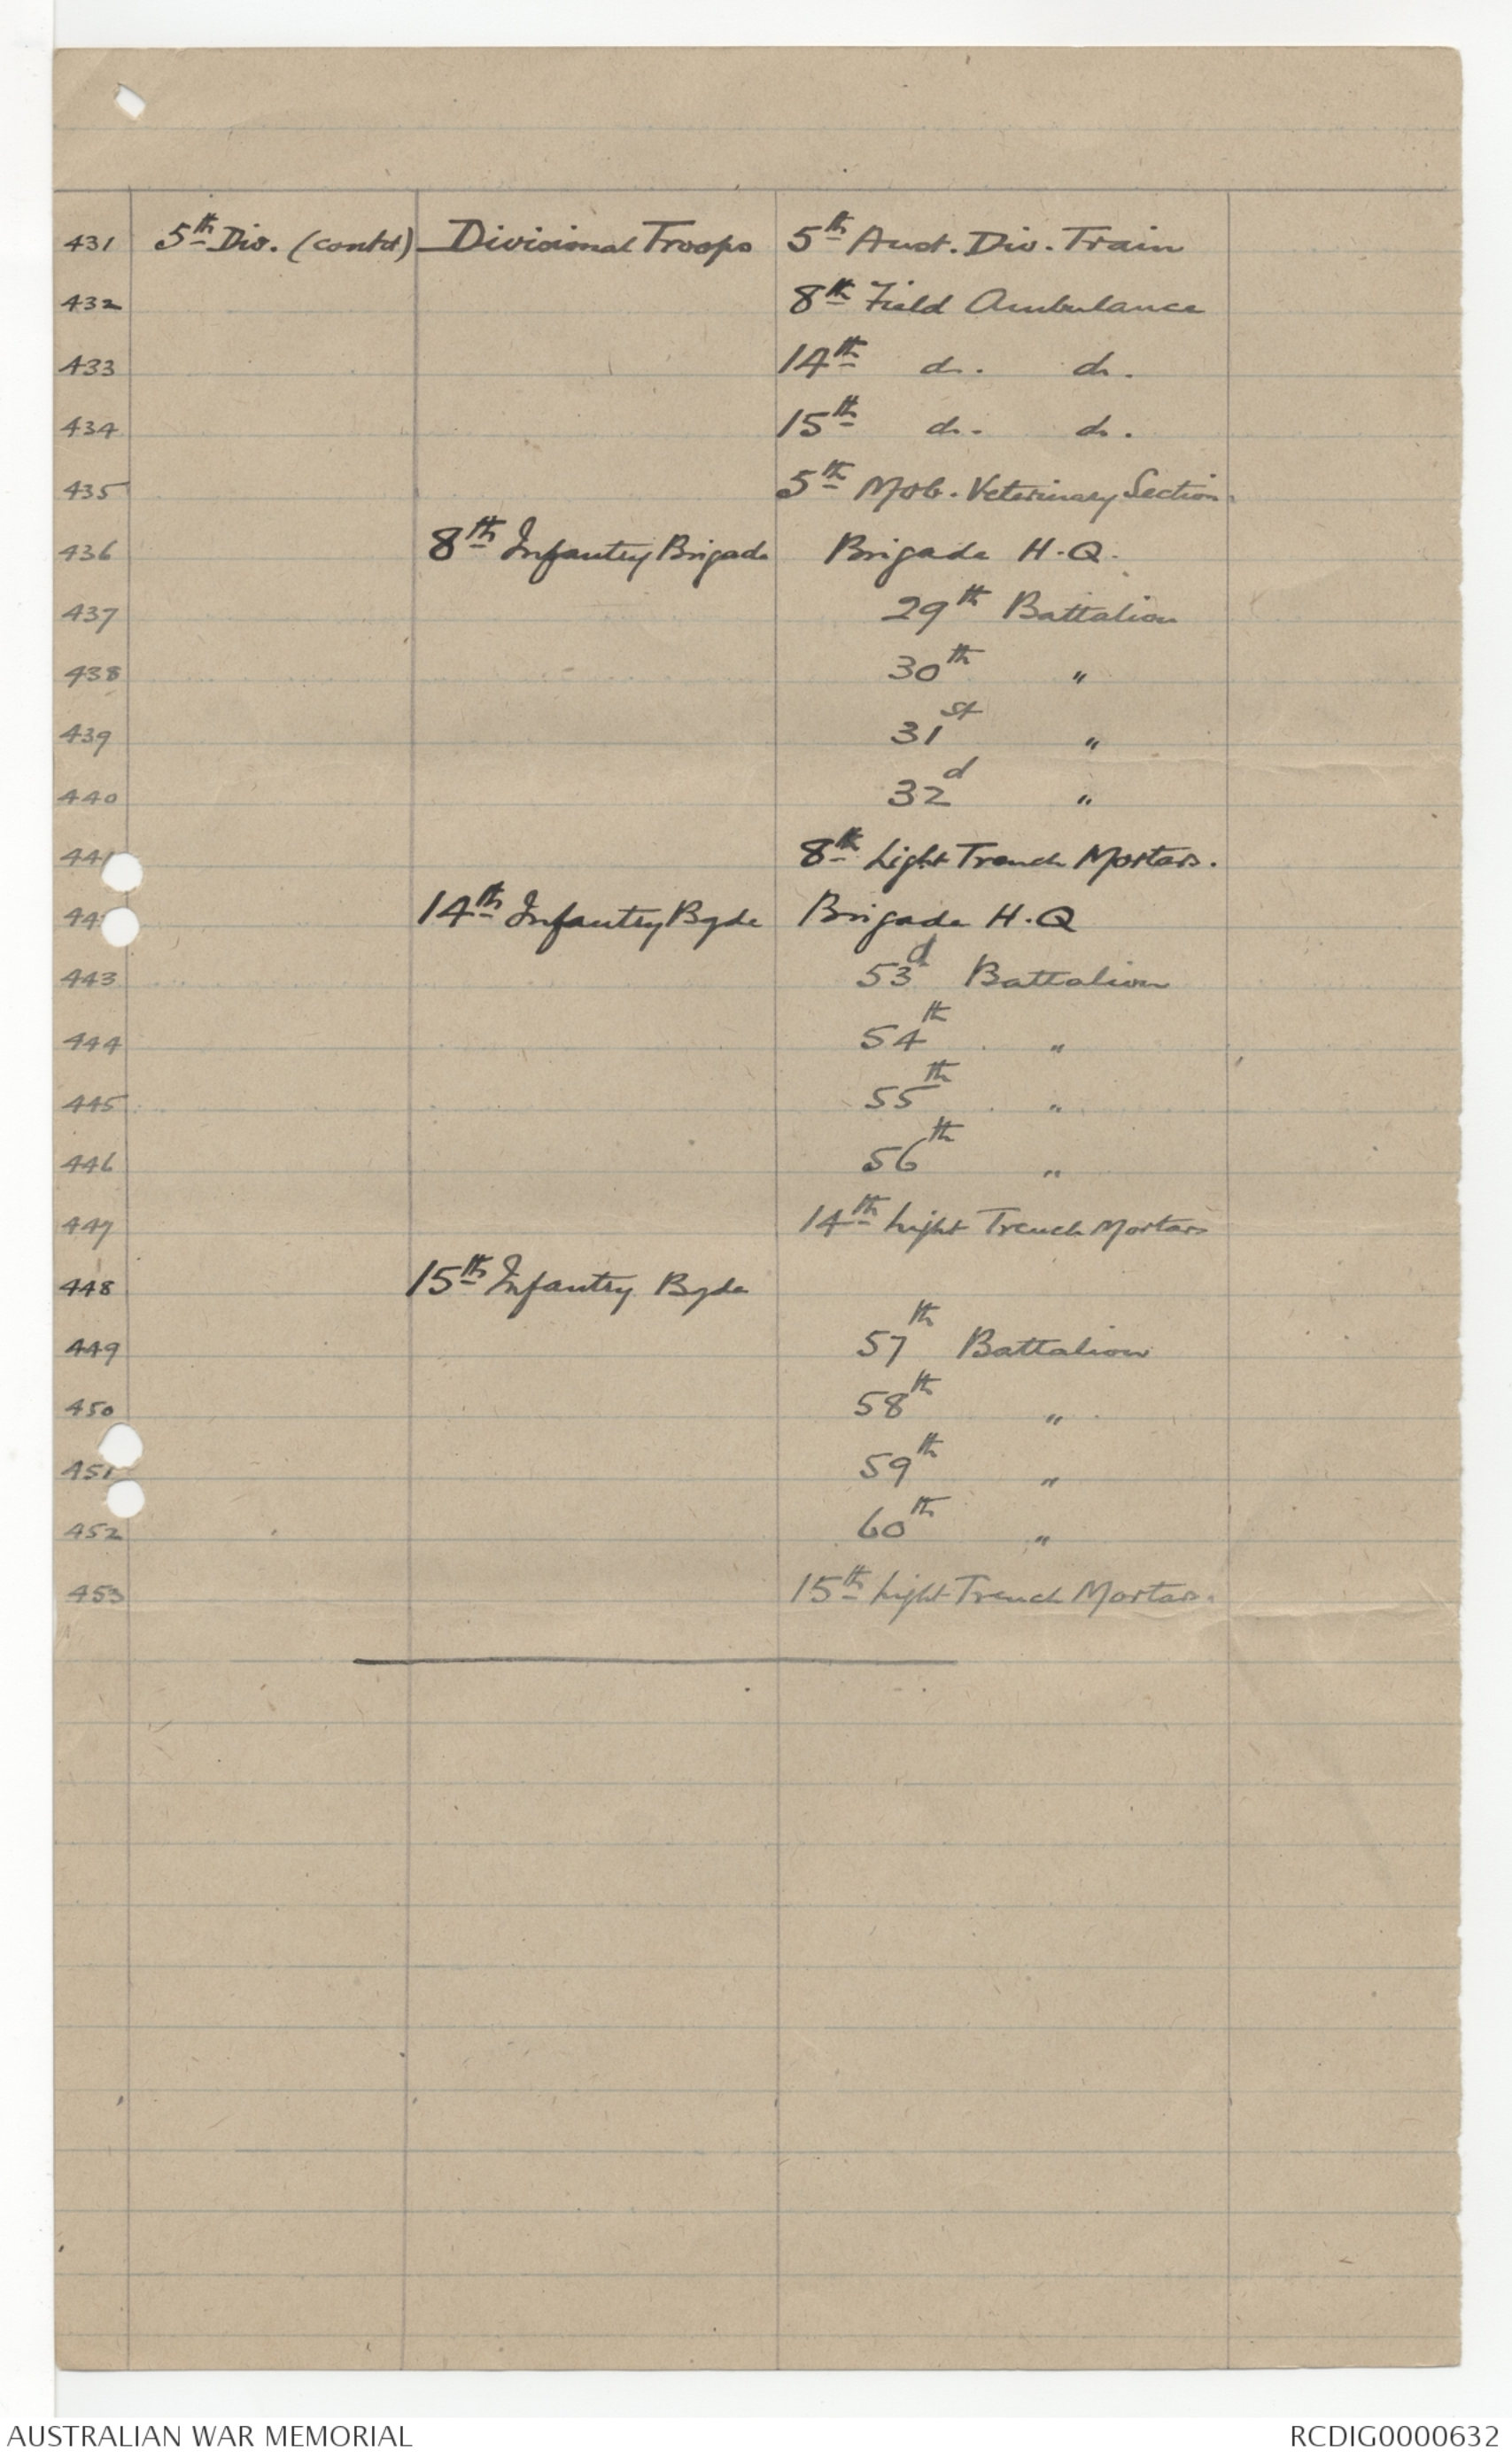 431 5th Div. (contd) Divisional Troops 5th Aust. Div. Train
432 8th Field Ambulance
433 14th do. do.
434 15th do. do.
435 5th Mob. Veterinary Section.
436 8th Infantry Brigade Brigade H.Q.
437 29th Battalion
438 30th "
439 31st "
440 32d "
441 8th Light Trench Mortars.
44 14th Infantry Bgde Brigade H.Q
443 53d Battalion
444 54th "
445 55th "
446 56th "
447 14th Light Trench Mortars
448 15th Infantry Bgde
449 57th Battalion
450 58th "
451 59th "
452 60th "
453 15th Light Trench Mortars.
AUSTRALIAN WAR MEMORIAL RCDIG0000632